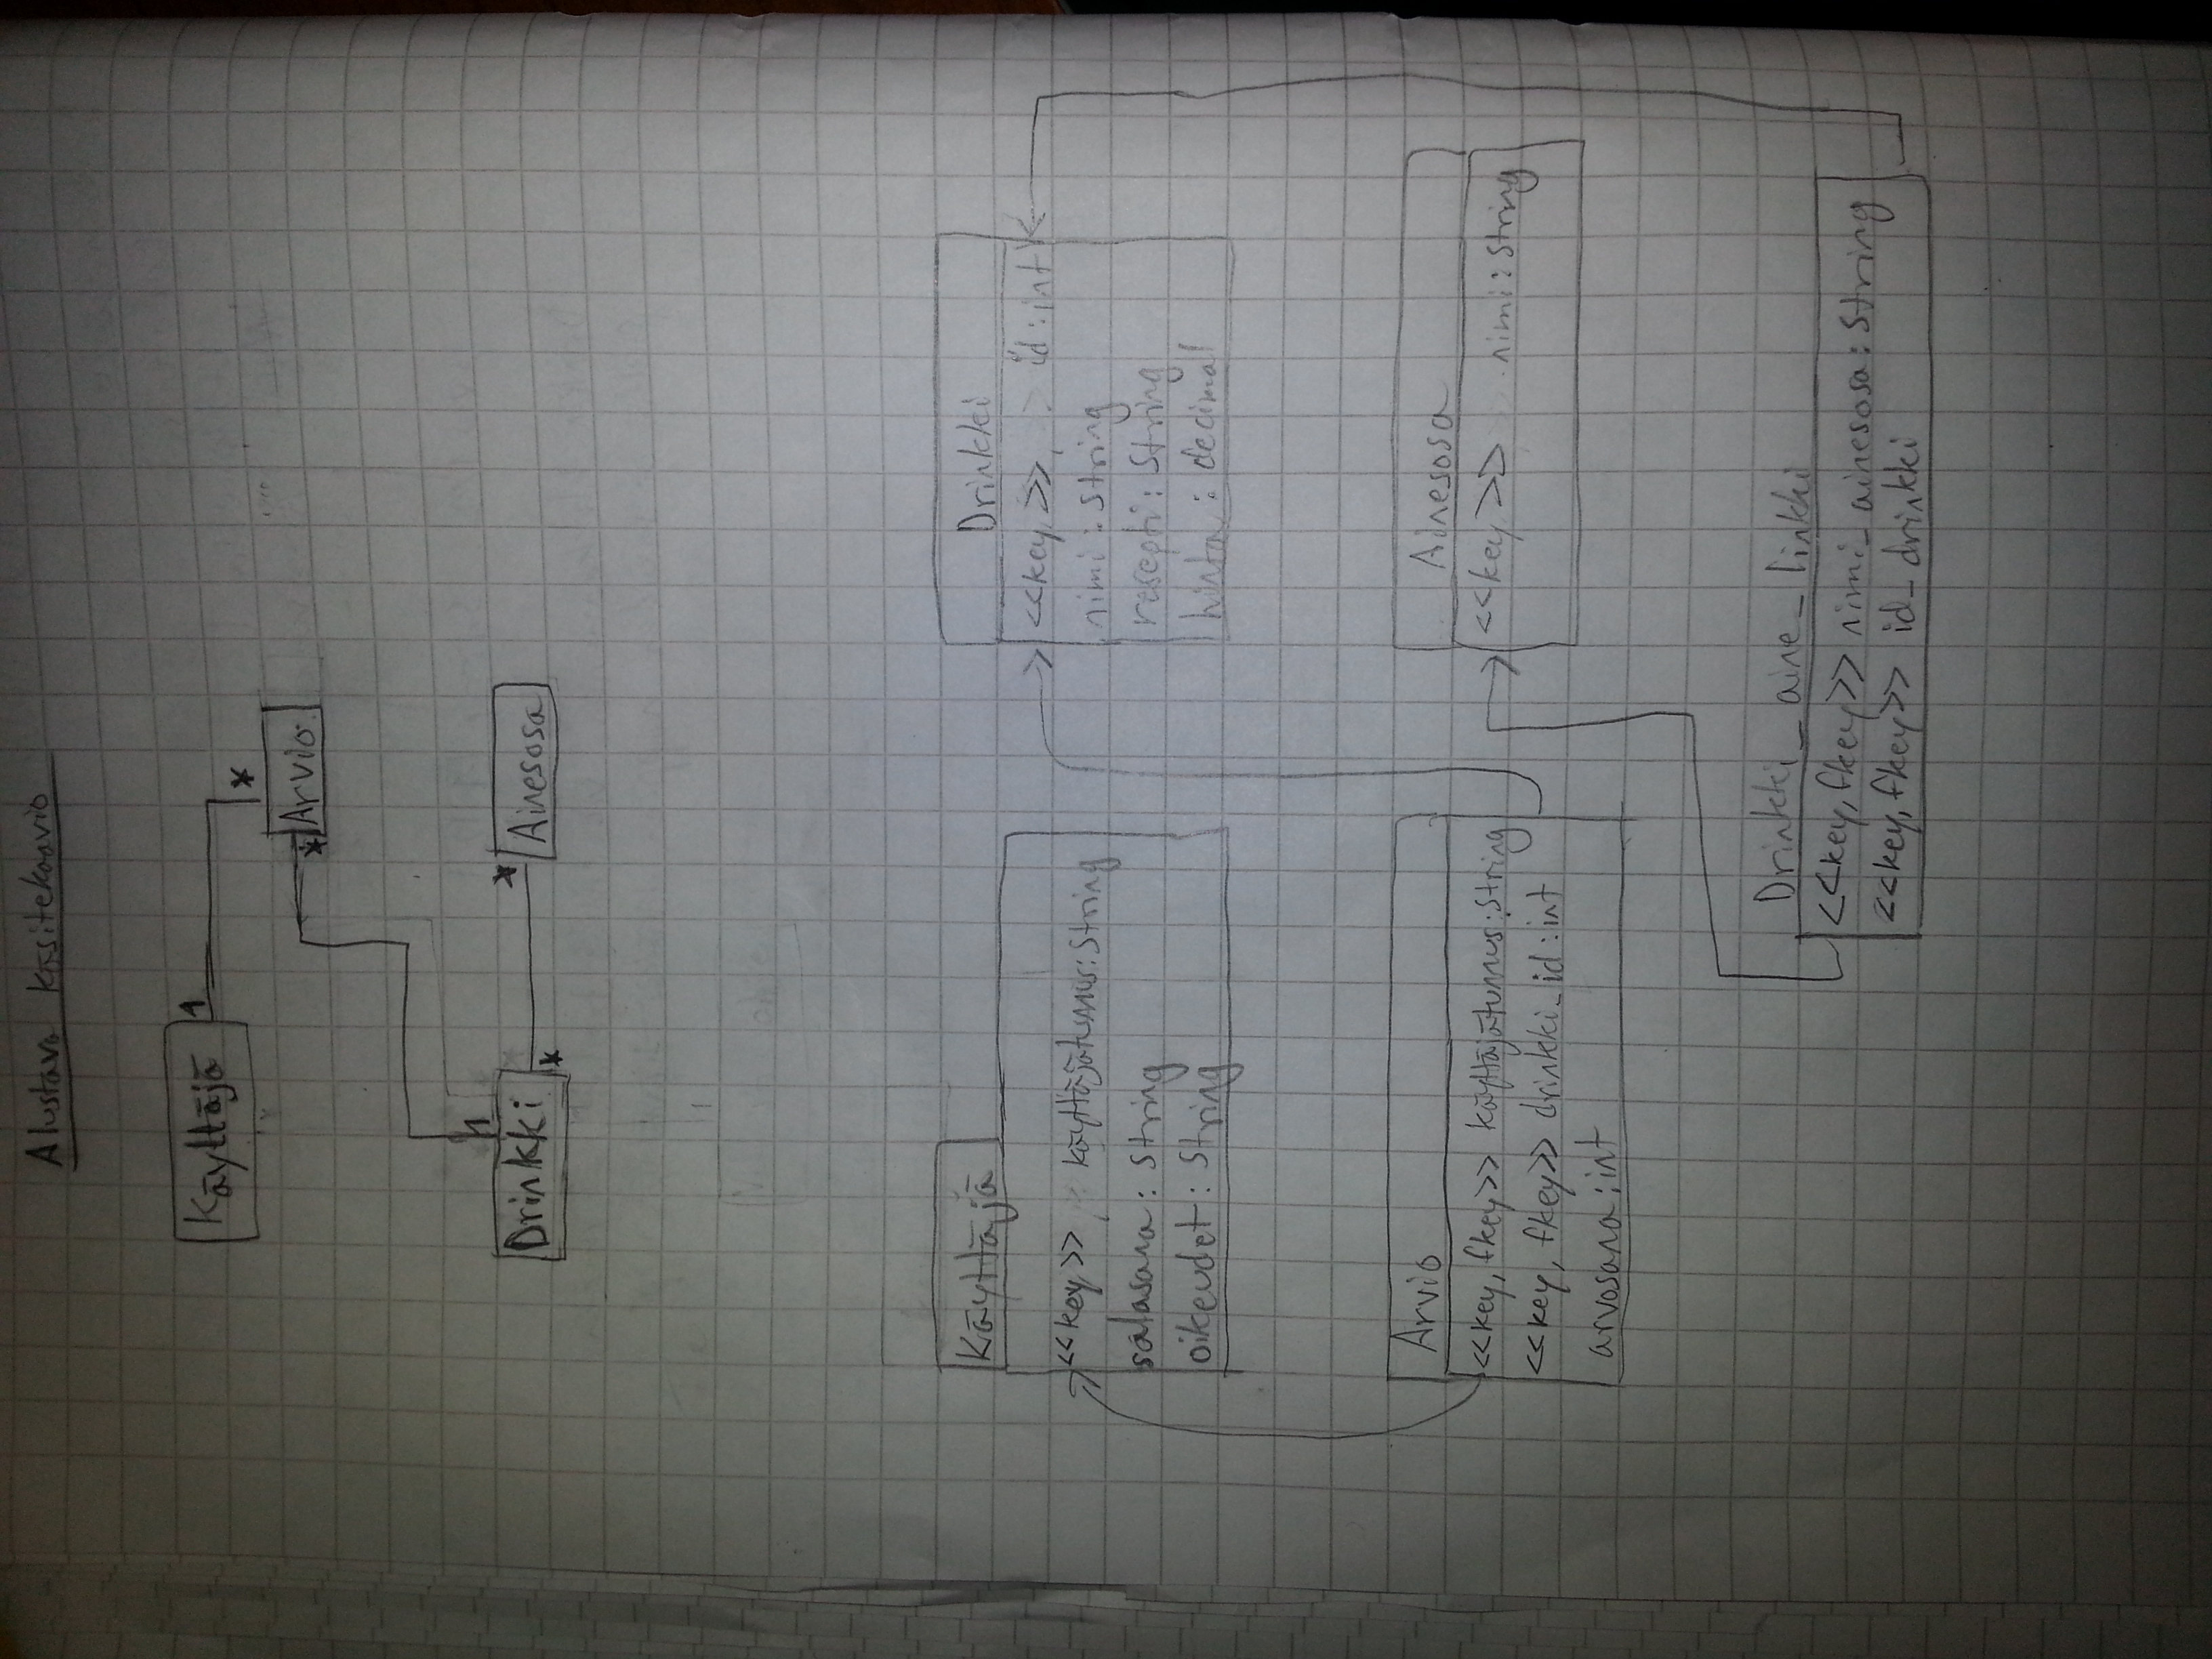 Alustava käsitekaavio
Käyttäjä
1
*
Arvio
*
1
Drinkki
*
*
Ainesosa
Käyttäjä
<<key>> käyttäjätunnus: String
salasana: String
oikeudet: String
Drinkki
<<key>> id: int
nimi: String
resepti: String
hinta: decimal
Arvio
<<key, fkey>> käyttäjätunnus: String
<<key, fkey>> drinkki_id: int
arvosana: int
Ainesosa
<<key>> nimi: String
Drinkki_aine_linkki
<<key, fkey>> nimi_ainesosa: String
<<key, fkey>> id_drinkki